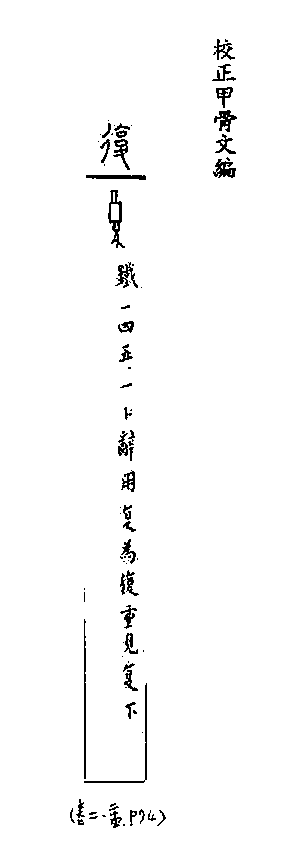 校正甲骨文編
復
鐵一四五·一卜辭用复為復重見复下
(卷二·一壹.P74)